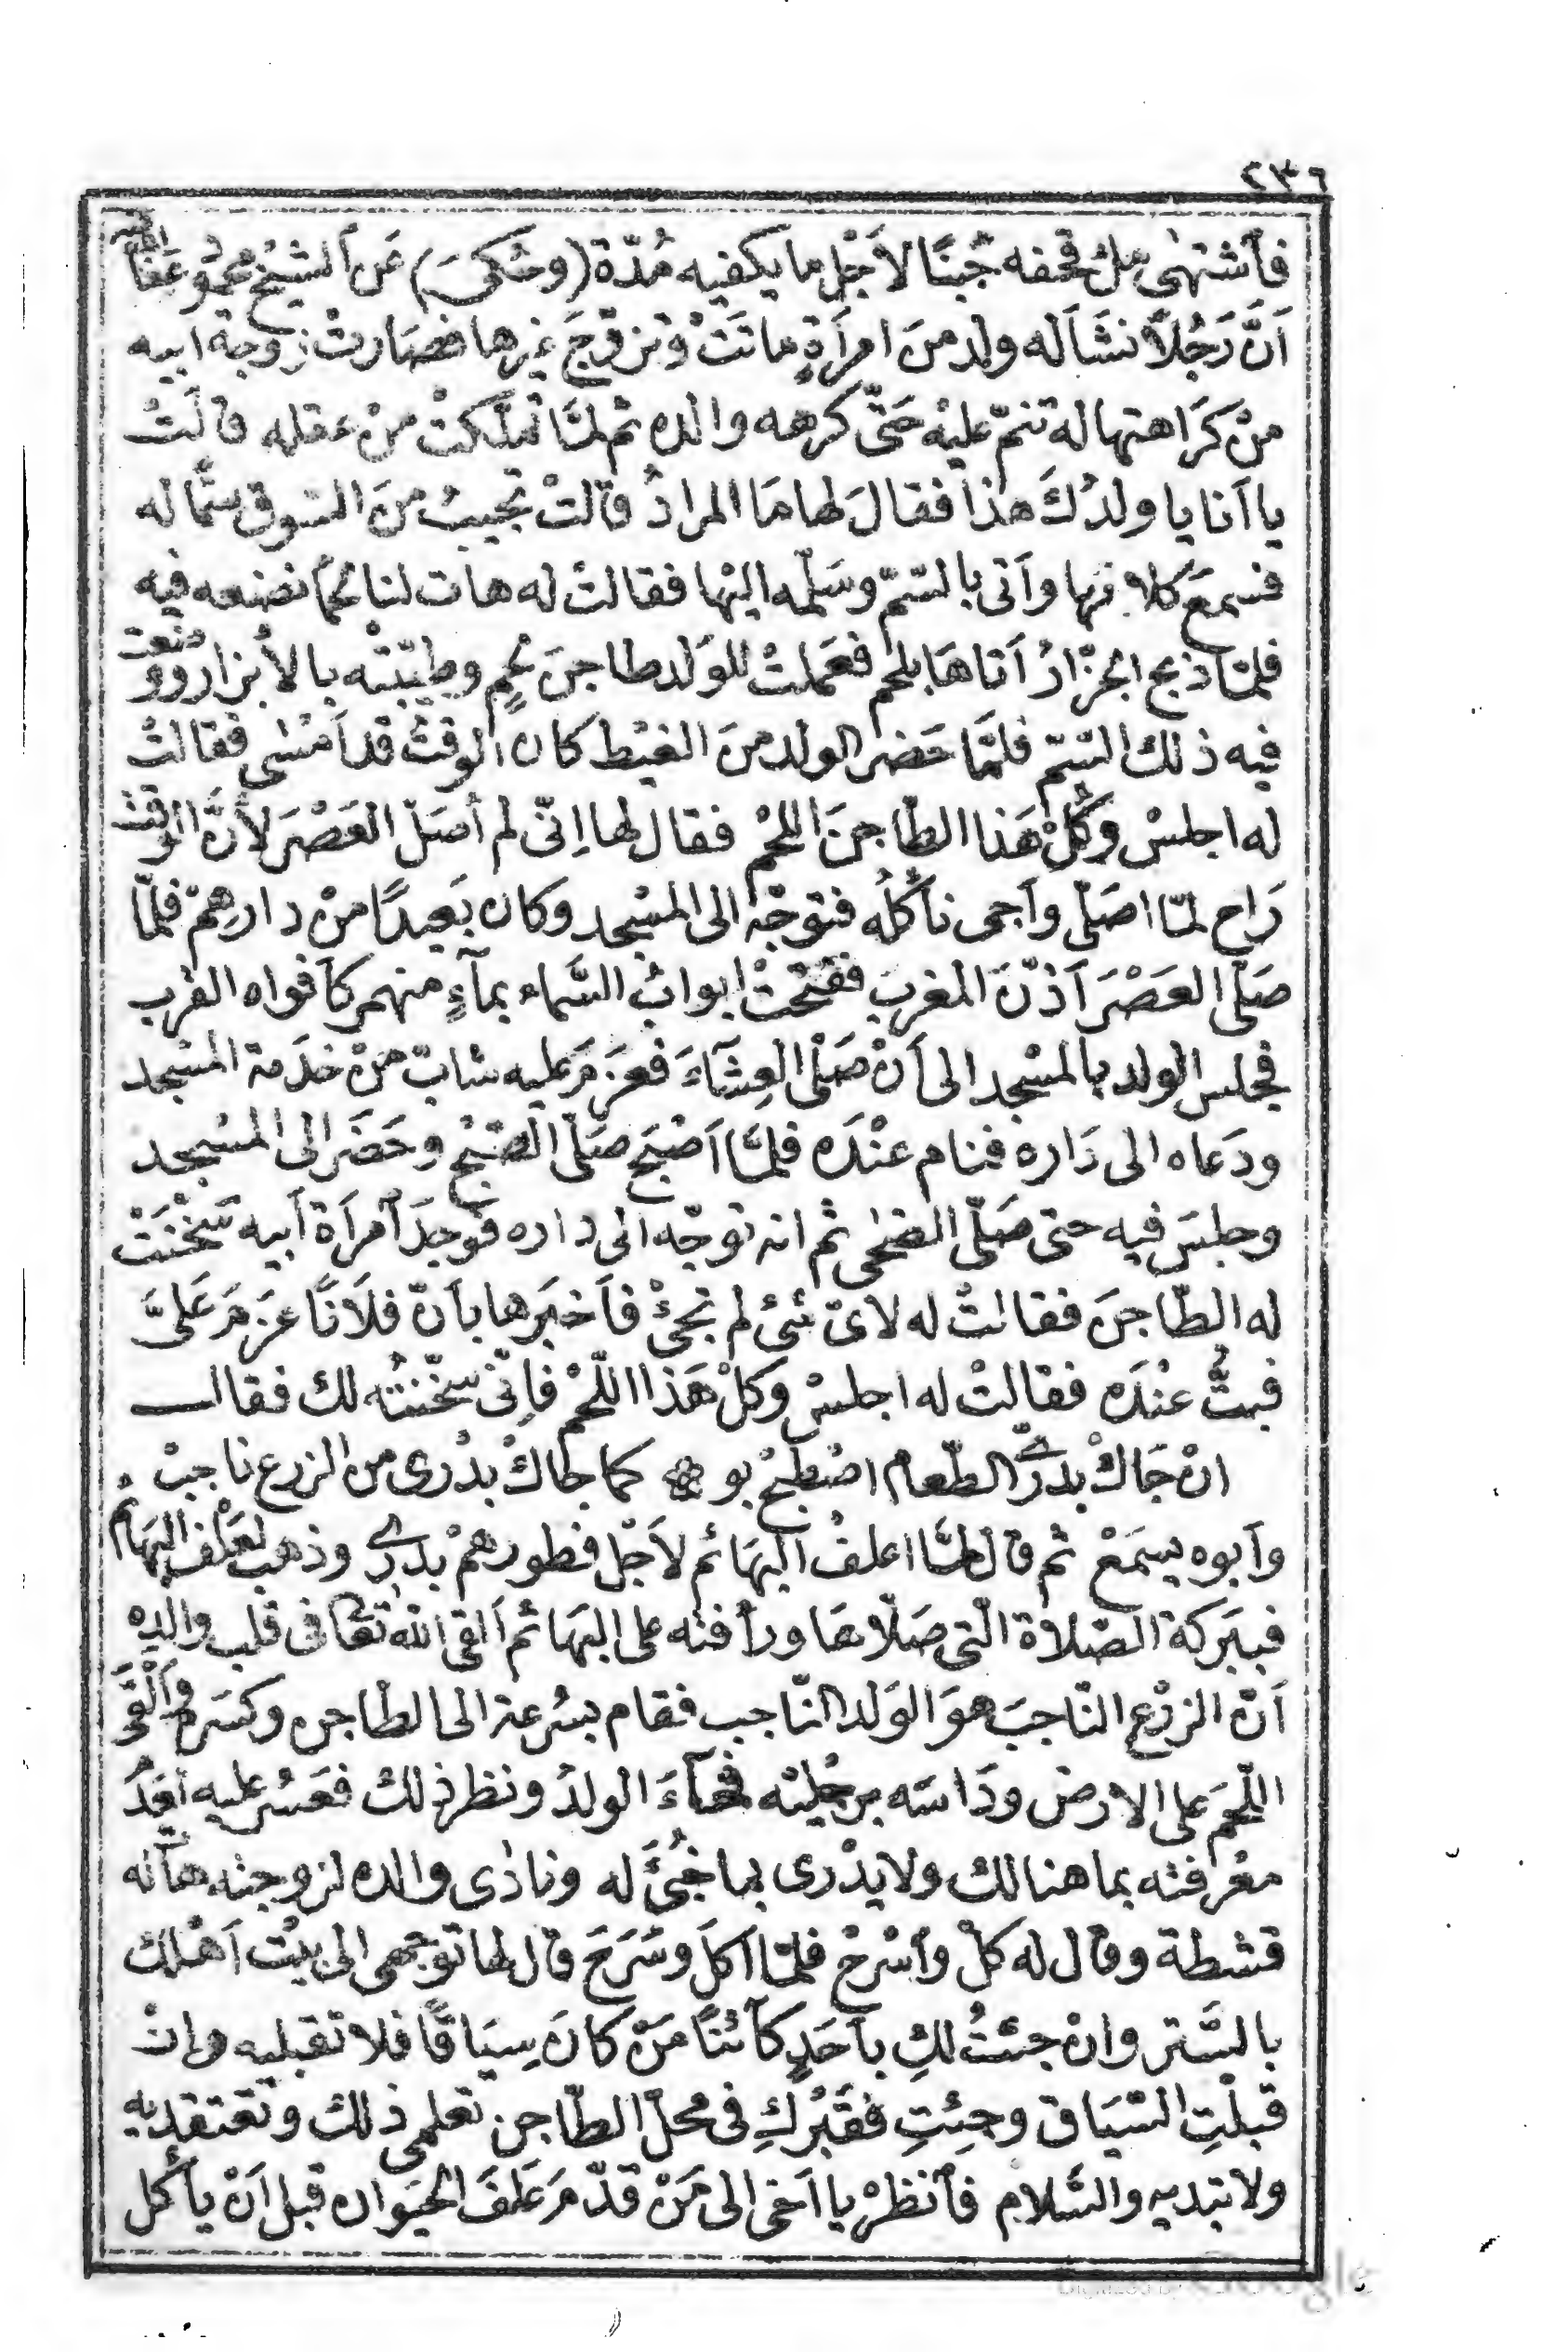 ٢٣٦
فٱشتهىٰ ملئ قحفه جُبنًا لأَجْل ما يكفيه مُدّة (وحُكىَ) عَن ٱلشيخ محمود عَفَا الله
اَنَّ رَجُلاً نشَأ له ولد منَ امرأةٍ ماتَتْ وتزوّجَ غيرها فصَارتْ زوجة ابيه
منْ كَرَاهتها له تنمّ عليْه حَتّى كرهه والده ثم لمّا تملّكتْ منْ عقله قالَتْ
يا اَنا يا ولدُكَ هٰذا فقالَ لها مَا المرادُ قالتْ تجيبُ منَ السّوق سمًّا له
فسمعَ كلامها وآتى بالسّمّ وسَلّمه اليْها فقالتْ له هات لنا لحمًا نضعه فيه
فلمّا ذبح الجزّارُ اَتاهَا بلحم فعَملتْ للوَلد طاجنَ لحمٍ وطيّبتْه بالأبزار ووضعَتْ
فيه ذلك السّمّ فلمَّا حَضر الولد منَ الغيْط كان الوقتُ قد اَمْسٰى فقالتْ
له اجلسْ وكُلْ هَذا الطّاجنَ اللحْم فقال لها اِنّى لم أصَلّ العَصْرَ لأنَّ الوقْت
رَاح لمّا اصَلّى وأجى نأكُلُه فتوجّه الى المسْجد وكان بَعيدًا منْ دارهمْ فلمّا
صَلّى العَصْرَ اَذّنَ المغربَ ففُتحتْ ابوابُ السَّماء بمآءٍ منهمر كأفواه القرب
فجلس الولد بالمسْجد الى أنْ صَلّى العِشَآءَ فعزمَ عليه شابّ منْ خدَمة المسْجد
ودَعاه الى دَاره فنام عنْدَه فلمّا اَصْبحَ صَلّى الصّبْح وحَضَر الى المسْجد
وجلسَ فيه حتى صَلّى الضّحى ثم انه توجّه الى داره فوجدَ ٱمرَأة أبيه سَخّنَتْ
له الطّاجنَ فقالتْ له لاىّ شئ لم تجئْ فأخبَرها بأنّ فلَانًا عزمَ عَلىَّ
فبتُّ عنْدَه فقالتْ له اجلسْ وكلْ هَذا اللّحْم فإنّى سَخّنتُه لك فقال
انْ جَاكْ بدْرى الطّعام اصْطبحْ بو * كما جاكْ بدْرى من الزرع ناجبْ
وأبوه يسمَعْ ثم قال لمّا اعلفْ البهَائم لأجْل فطورهمْ بدْرى وذهب لعَلْف البهَائم
فببَركة الصّلاة الّتى صَلّاهَا ورأفته على البهَائم اَلقى الله تعالى فى قلب والده
اَنّ الزرْع النّاجبَ هوَ الوَلد النّاجب فقام بسُرعة الى الطّاجن وكسَره وأَلْقَى
اللّحمَ على الارض ودَاسَه برجْليْه فجآءَ الولدُ ونظر ذلك فعَسُر عليه لعَدَم
معْرفته بما هنالك ولا يدْرى بما خُبّئَ له ونادٰى والده لزوجته هاته
قشطة وقال له كلْ وأسْرحْ فلمّا اَكلَ وسَرَحَ قال لها توجّهى الى بيْت اَهْلك
بالسَّتر وانْ جئتُ لكِ بأحَدٍ كآئنًا مَنْ كانَ سِيَاقًا فلا تقبليه وانْ
قبلْتِ السّيَاق وجِئتِ فقَبْرُكِ فى محلّ الطّاجن تعلمى ذلك وتعتقديه
ولا تبديه والسَّلام فٱنظرْ يا اَخى الى مَنْ قدّمَ عَلفَ الحيَوان قبل اَنْ يأكل